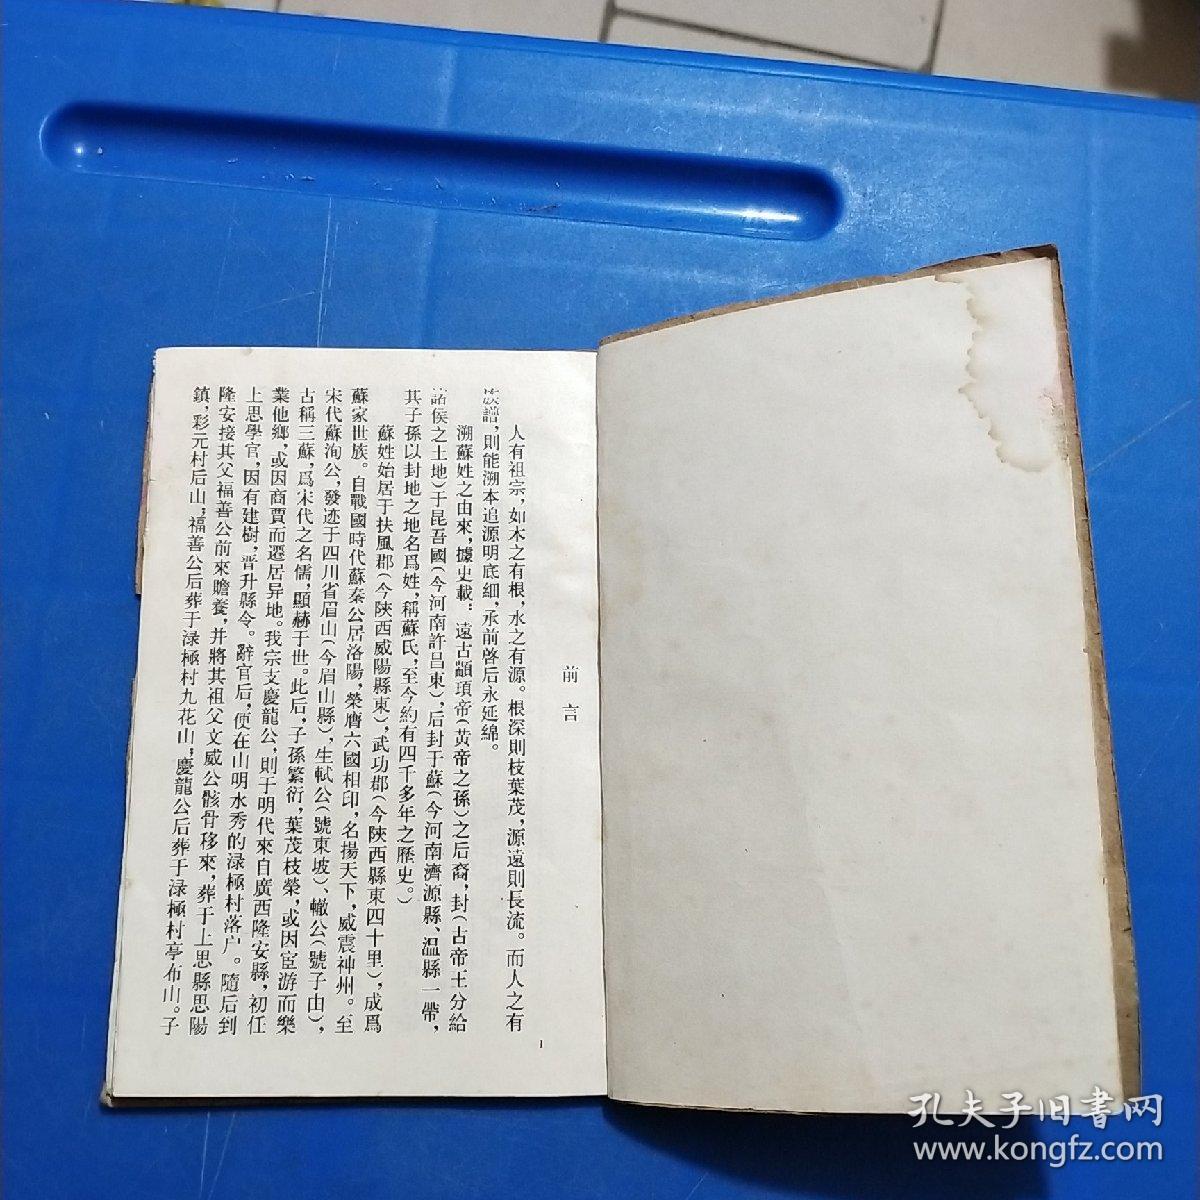 前言
人有祖宗，如木之有根，水之有源。根深則枝葉茂，源遠則長流。而人之有
族譜，則能溯本追源明底細，承前啓后永延綿。
溯蘇姓之由來，據史載：遠古顓頊帝（黄帝之孫）之后裔，封（古帝王分給
諸侯之土地）于昆吾國（今河南許昌東），后封于蘇（今河南濟源縣、温縣一帶，
其子孫以封地之地名爲姓，稱蘇氏，至今約有四千多年之歷史。）
蘇姓始居于扶風郡（今陝西咸陽縣東），武功郡（今陝西縣東四十里），成爲
蘇家世族。自戰國時代蘇秦公居洛陽，榮膺六國相印，名揚天下，威震神州。至
宋代蘇洵公，發迹于四川省眉山（今眉山縣），生軾公（號東坡）、轍公（號子由），
古稱三蘇，爲宋代之名儒，顯赫于世。此后，子孫繁衍，葉茂枝榮，或因宦游而樂
業他鄉，或因商賈而遷居异地。我宗支慶龍公，則于明代來自廣西隆安縣，初任
上思學官，因有建樹，晋升縣令。辭官后，便在山明水秀的渌極村落户。隨后到
隆安接其父福善公前來贍養，并將其祖父文威公骸骨移來，葬于上思縣思陽
鎮，彩元村后山，福善公后葬于渌極村九花山，慶龍公后葬于渌極村亭布山。子
1
孔夫子旧書网
www.kongfz.com